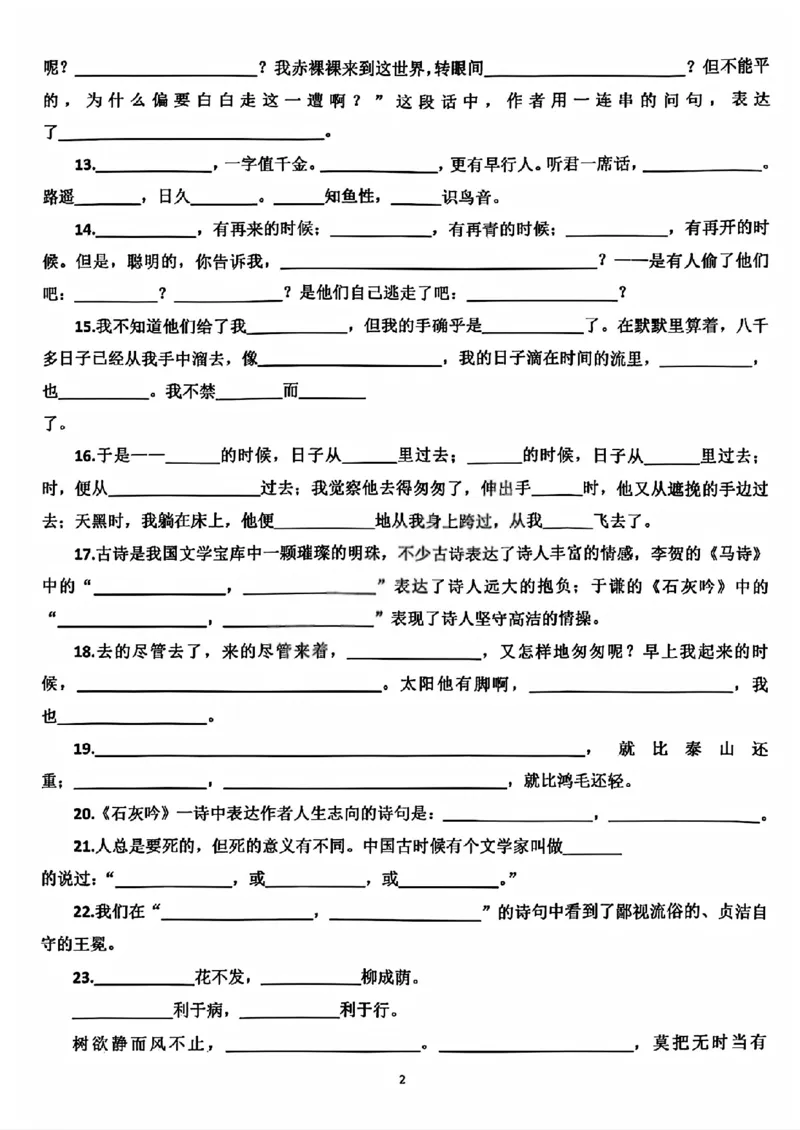 呢？____________________？我赤裸裸来到这世界，转眼间______________________？但不能平
的，为什么偏要白白走这一遭啊？”这段话中，作者用一连串的问句，表达
了_____________________________。
13._____________，一字值千金。_____________，更有早行人。听君一席话，_____________。
路遥_______，日久_______。______知鱼性，______识鸟音。
14.___________，有再来的时候；___________，有再青的时候；___________，有再开的时
候。但是，聪明的，你告诉我，___________________________________？——是有人偷了他们
吧：_________？____________？是他们自己逃走了吧：________________？
15.我不知道他们给了我___________，但我的手确乎是___________了。在默默里算着，八千
多日子已经从我手中溜去，像____________________，我的日子滴在时间的流里，__________，
也__________。我不禁_______而_______
了。
16.于是——______的时候，日子从______里过去；______的时候，日子从______里过去；
时，便从________________过去；我觉察他去得匆匆了，伸出手_____时，他又从遮挽的手边过
去；天黑时，我躺在床上，他便___________地从我身上跨过，从我_____飞去了。
17.古诗是我国文学宝库中一颗璀璨的明珠，不少古诗表达了诗人丰富的情感，李贺的《马诗》
中的“______________，______________”表达了诗人远大的抱负；于谦的《石灰吟》中的
“________________，________________”表现了诗人坚守高洁的情操。
18.去的尽管去了，来的尽管来着，______________，又怎样地匆匆呢？早上我起来的时
候，_________________________________。太阳他有脚啊，______________________，我
也________________。
19.______________________________________________________，就比泰山还
重；______________，______________________________，就比鸿毛还轻。
20.《石灰吟》一诗中表达作者人生志向的诗句是：________________，________________。
21.人总是要死的，但死的意义有不同。中国古时候有个文学家叫做_______
的说过：“____________，或___________，或___________。”
22.我们在“________________，________________”的诗句中看到了鄙视流俗的、贞洁自
守的王冕。
23.___________花不发，___________柳成荫。
___________利于病，___________利于行。
树欲静而风不止，_____________________。_____________________，莫把无时当有
2